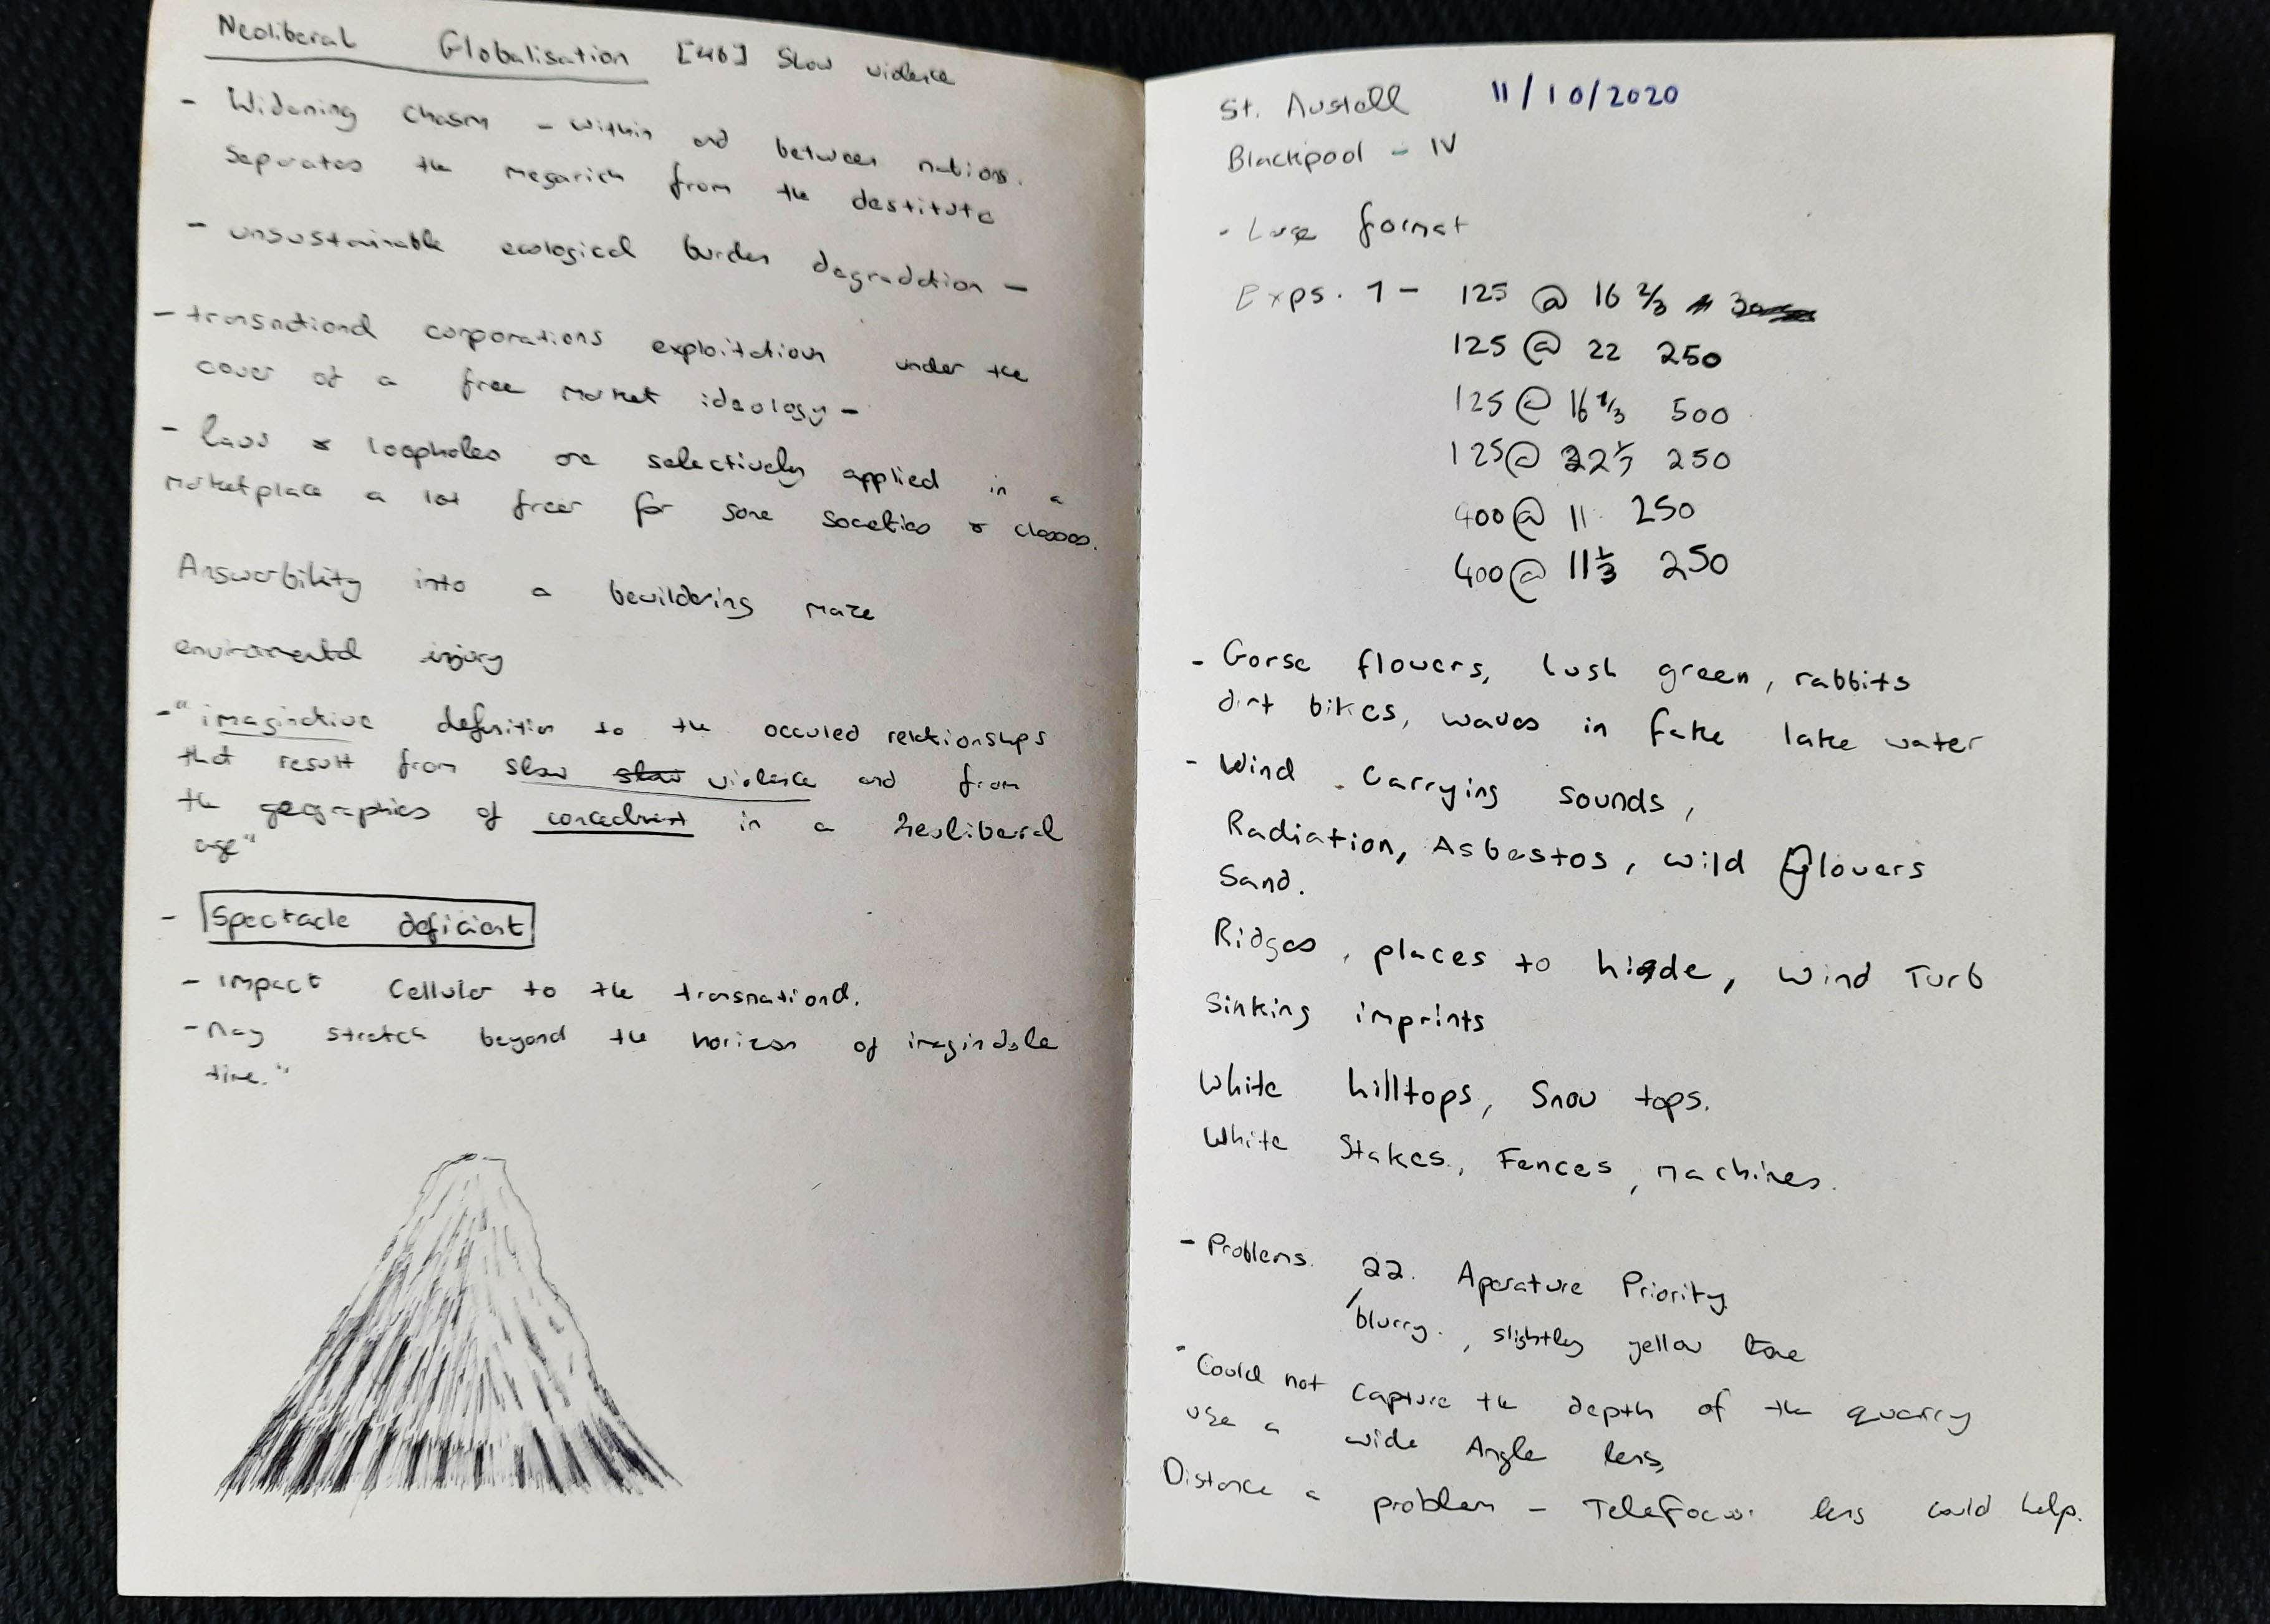 Neoliberal Globalisation [46] Slow violence
- Widening chasm - within and between nations.
Separates the megarich from the destitute
- unsustainable ecological burden degradation -
- transnational corporations exploitation under the
cover of a free market ideology -
- laws & loopholes are selectively applied in a
marketplace a lot freer for some societies & classes.
Answerbility into a bewildering maze
enviromental injury
- "imaginative definition to the occuled relationships
that result from slow slow violence and from
the geographies of concealment in a neoliberal
age"
- Spectacle deficient
- impact Cellular to the transnational.
- May stretch beyond the horizon of imaginable
time."
St. Austell 11/10/2020
Blackpool - IV
- Large format
Exps. 1 - 125 @ 16 2/3
125 @ 22 250
125 @ 16 1/3 500
125 @ 22 250
400 @ 11 250
400 @ 11 1/3 250
- Gorse flowers, lush green, rabbits
dirt bikes, waves in fake lake water
- Wind Carrying sounds,
Radiation, Asbestos, wild flowers
Sand.
Ridges, places to hide, Wind Turb
Sinking imprints
White hilltops, Snow tops.
White Stakes, Fences, machines.
- Problems. 22. Aperature Priority
blurry., slightly yellow tone
- Could not capture the depth of the quarry
use a wide Angle lens,
Distance a problem - Telefocus lens could help.